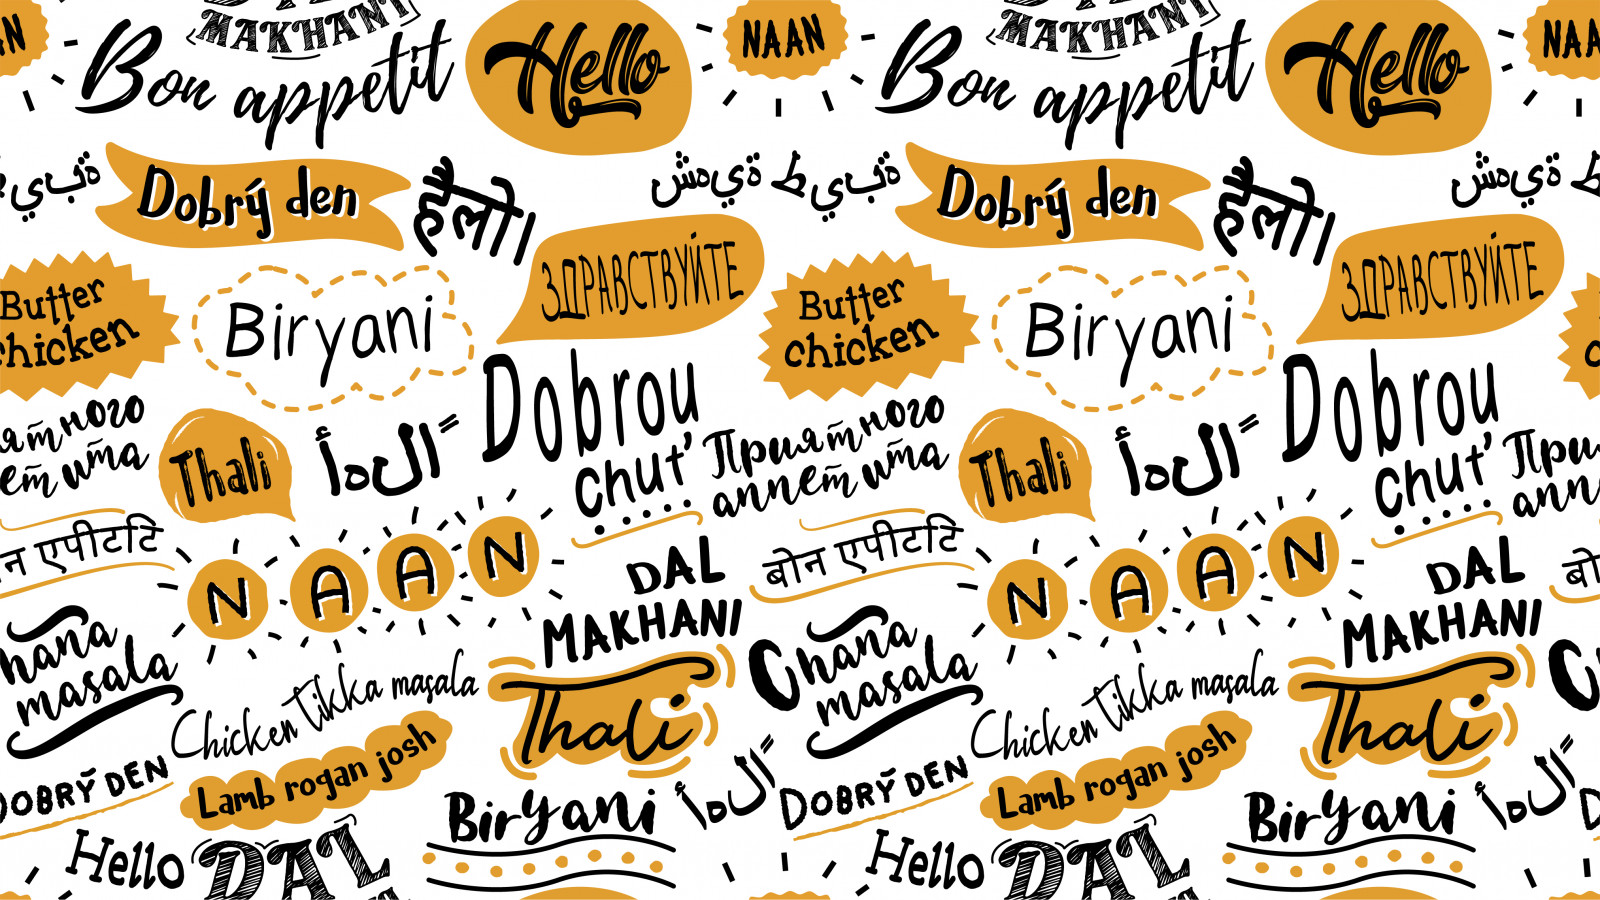 MAKHANI
MAKHANI
Bon appetit
Hello
NAAN
Bon appetit
Hello
شهية طيبة
Dobrý den
हैलो।
شهية طيبة
Dobrý den
हैलो।
ЗДРАВСТВУЙТЕ
ЗДРАВСТВУЙТЕ
Butter
chicken
Biryani
Butter
chicken
Biryani
Dobrou
chuť
Dobrou
chuť
Thali
أهلاً
Приятного
аппетита
Thali
أهلاً
एपीटटि
NAAN
DAL
MAKHANI
बोन एपीटटि
NAAN
DAL
MAKHANI
masala
Chicken tikka masala
Thali
Chana
masala
Chicken tikka masala
Thali
DOBRÝ DEN
Lamb rogan josh
Biryani
أهلاً
DOBRÝ DEN
Lamb rogan josh
Biryani
أهلاً
Hello
DAL
Hello
DAL